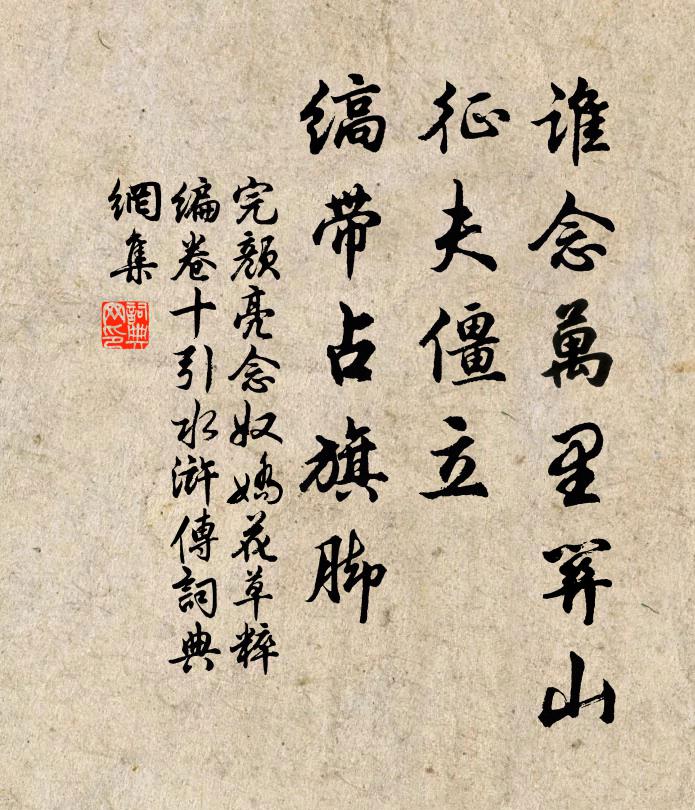 誰念萬里関山
征夫僵立
縞帶占旗脚
完顏亮念奴嬌花草粹
編卷十引水滸傳詞典
網集
詞典
网印